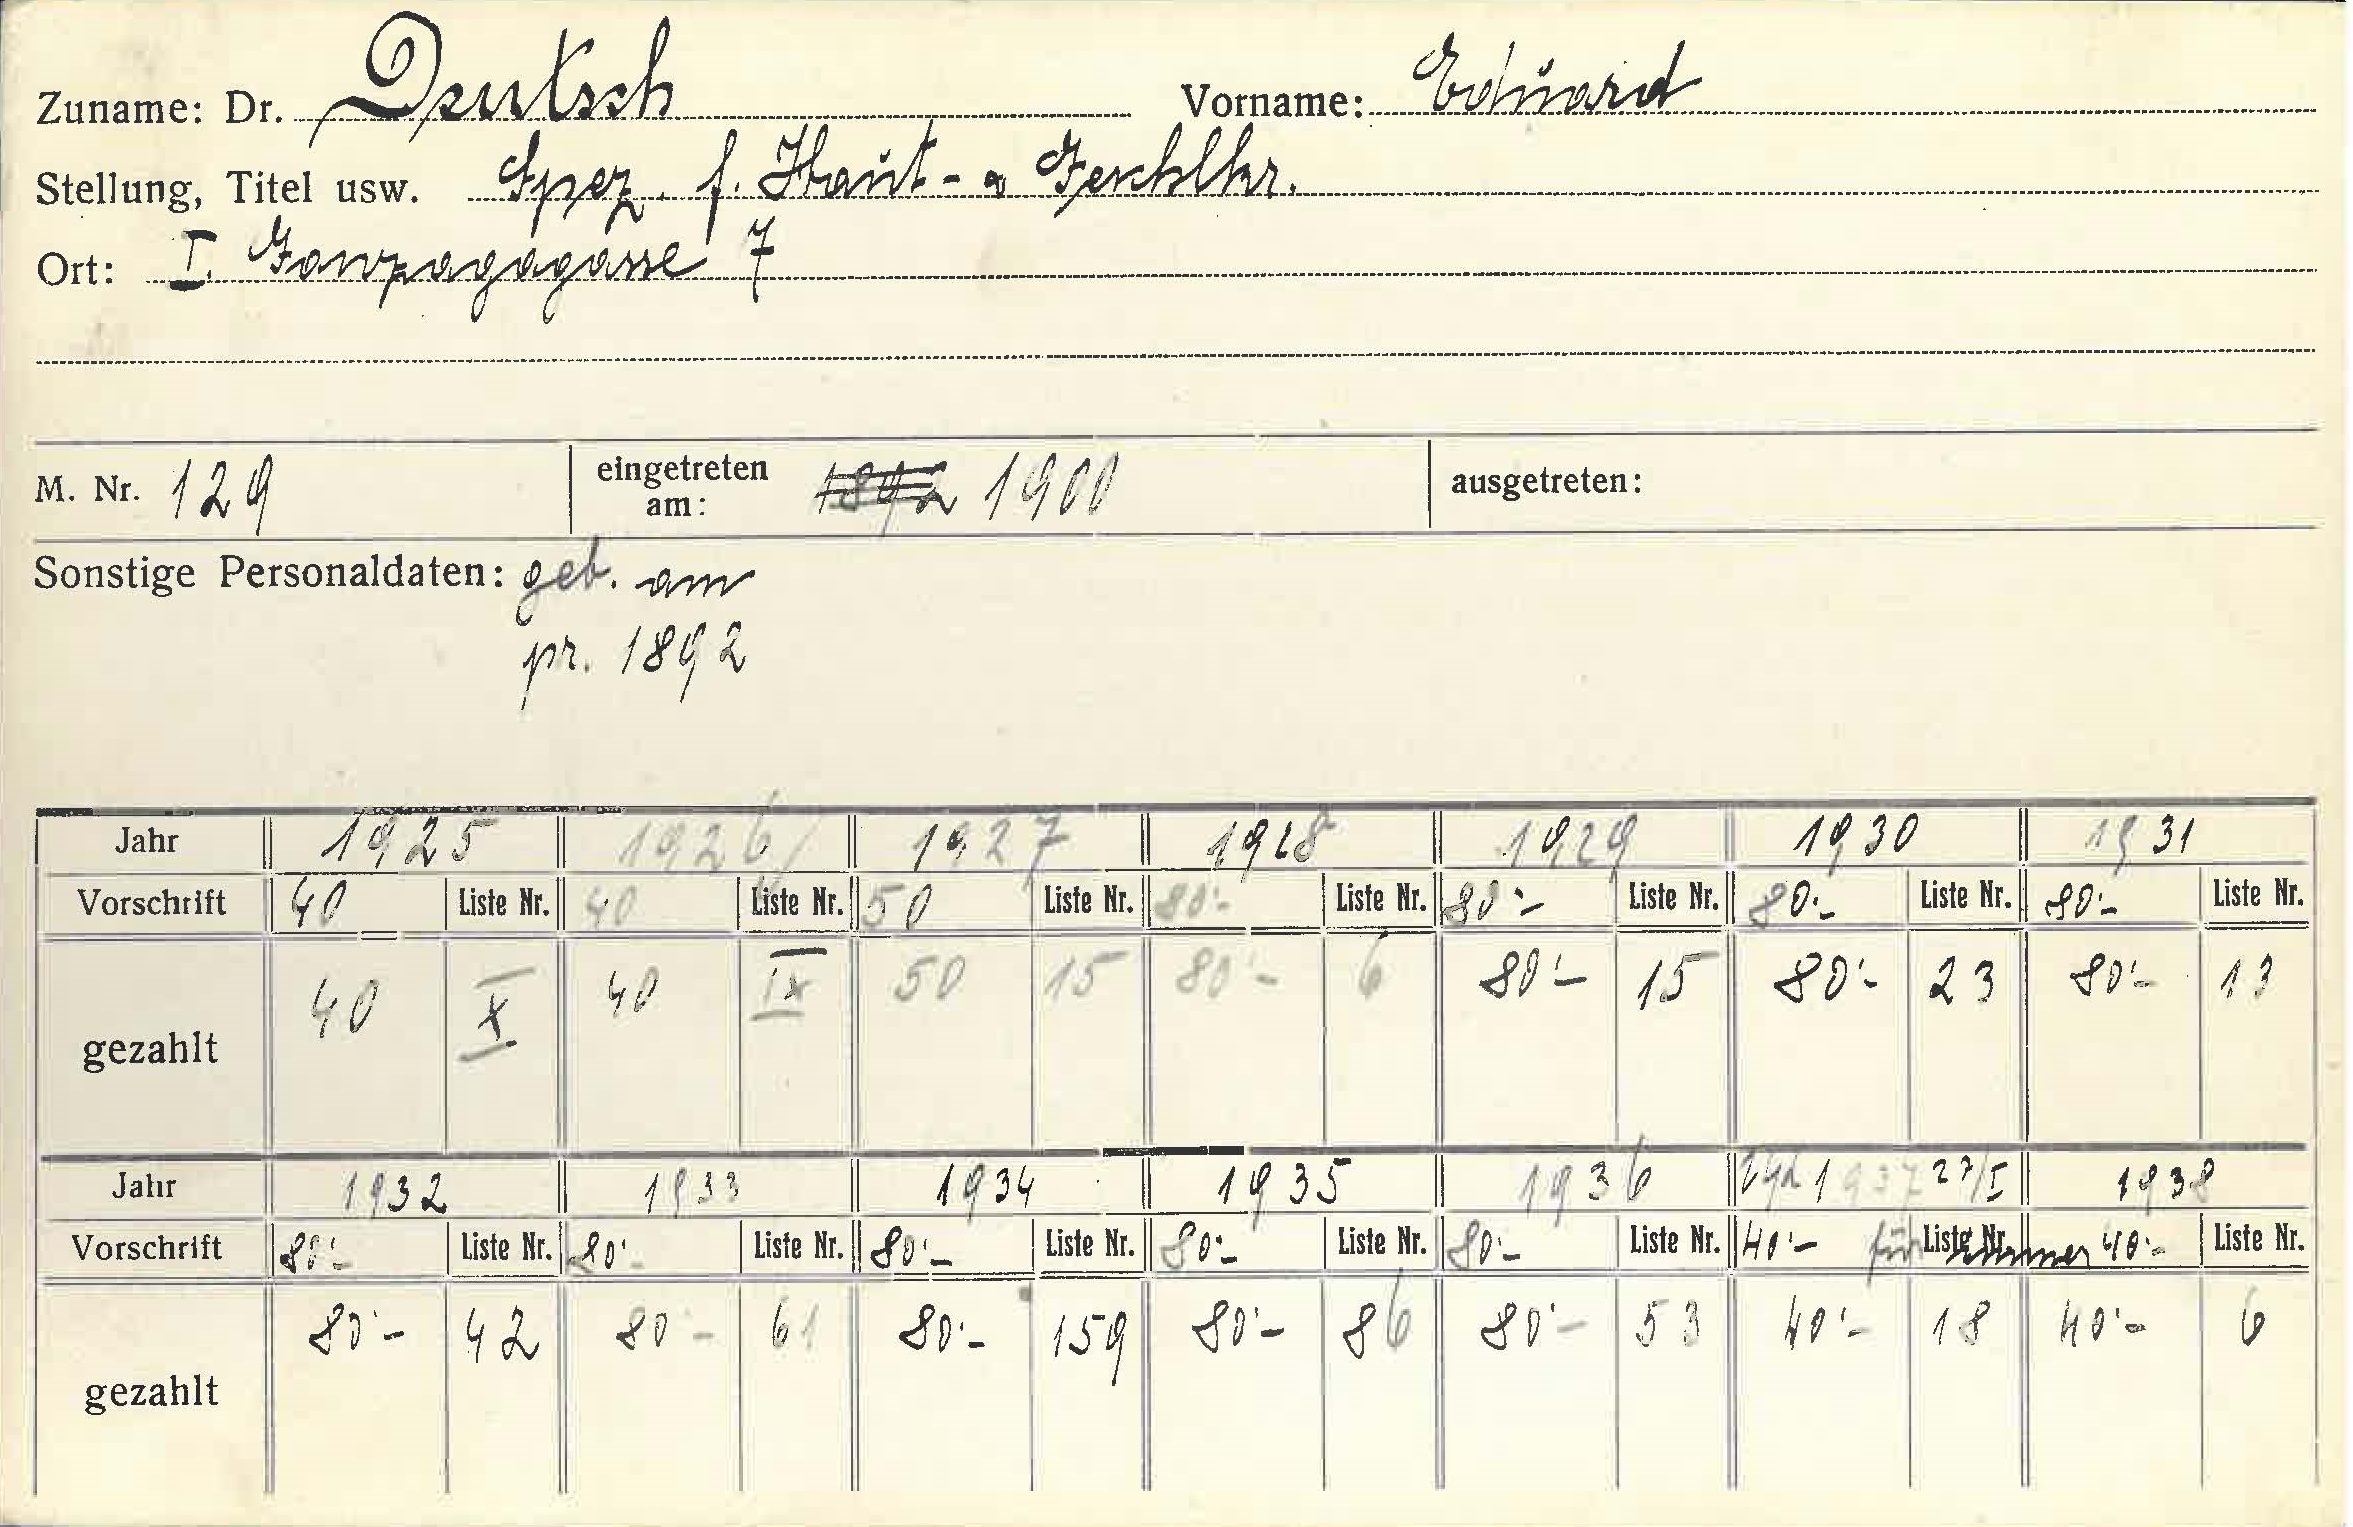 Zuname: Dr. Deutsch Vorname: Eduard
Stellung, Titel usw. Spez. f. Haut- u Geschlkr.
Ort: I. Gonzagagasse 7
M. Nr. 129 eingetreten am: 1892 1900 ausgetreten:
Sonstige Personaldaten: geb. am
pr. 1892
Jahr 1925 1926 1927 1928 1929 1930 1931
Vorschrift 40 Liste Nr. 40 Liste Nr. 50 Liste Nr. 80·- Liste Nr. 80·- Liste Nr. 80·- Liste Nr. 80·- Liste Nr.
gezahlt 40 X 40 IX 50 15 80·- 6 80·- 15 80·- 23 80·- 13
Jahr 1932 1933 1934 1935 1936 1937 27/I 1938
Vorschrift 80·- Liste Nr. 80·- Liste Nr. 80·- Liste Nr. 80·- Liste Nr. 80·- Liste Nr. 40·- für Liste Nr. immer 40·- Liste Nr.
gezahlt 80·- 42 80·- 61 80·- 159 80·- 86 80·- 53 40·- 18 40·- 6